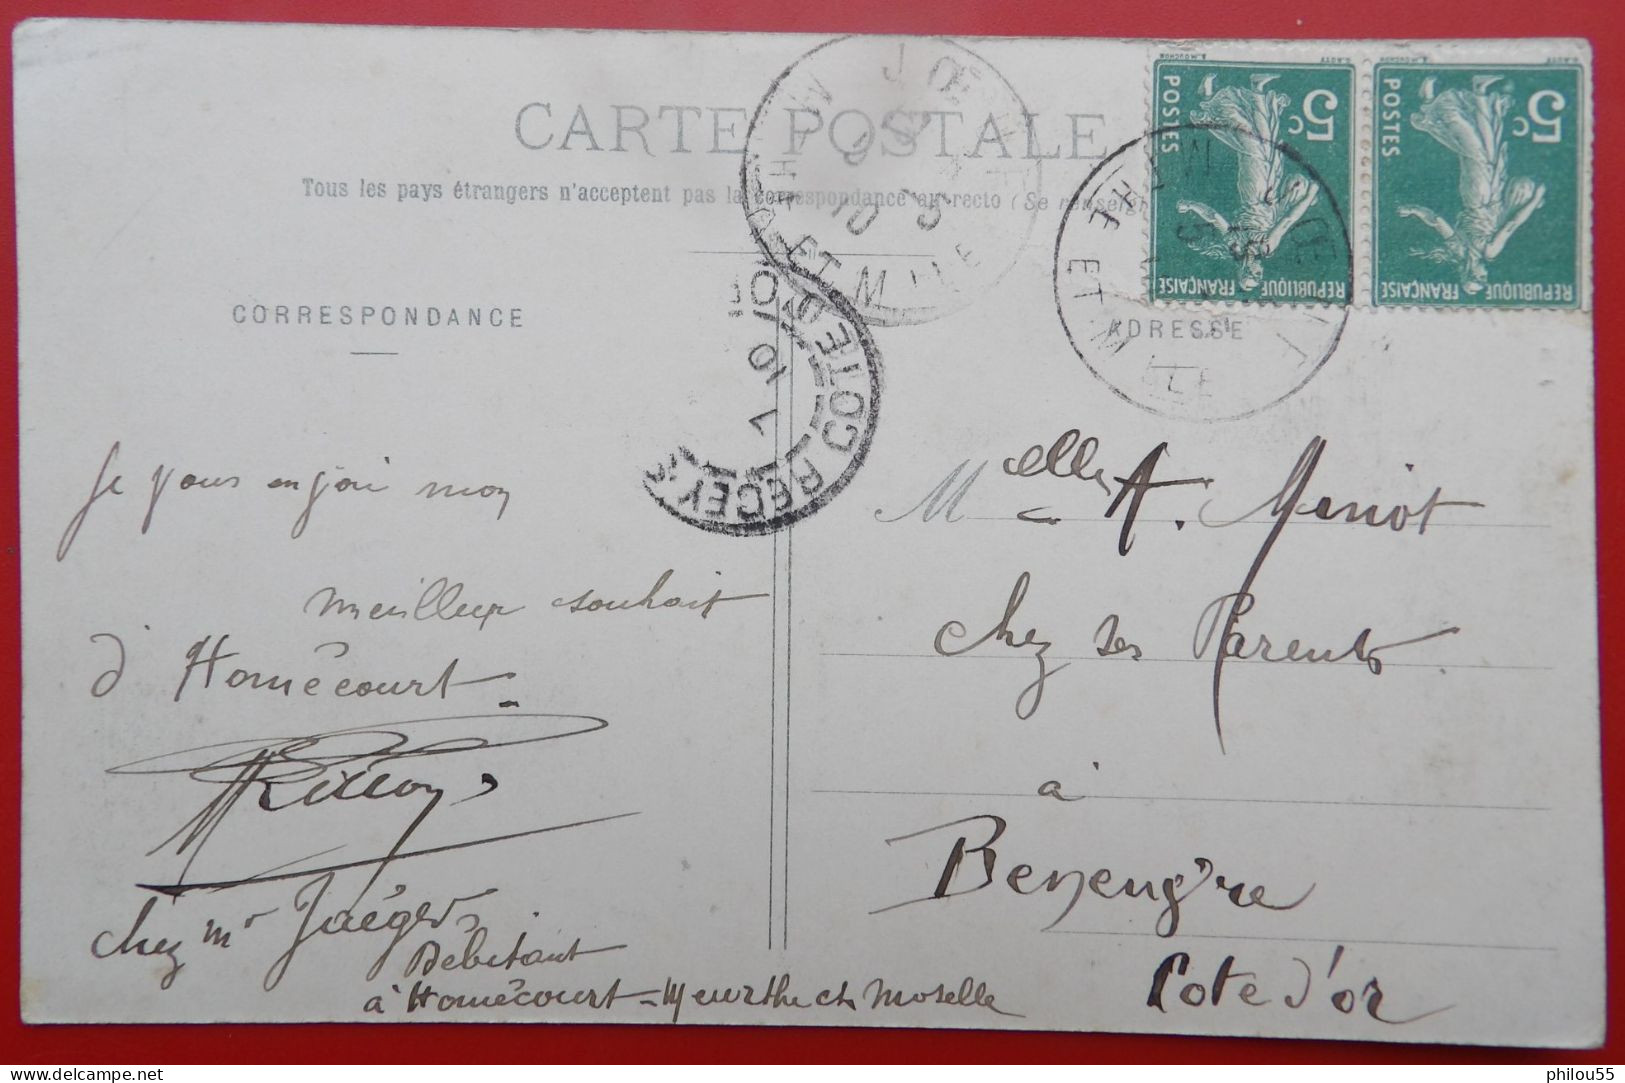 CARTE POSTALE
Tous les pays étrangers n'acceptent pas la correspondance au recto (Se renseign
CORRESPONDANCE
ADRESSE
5c
POSTES
REPUBLIQUE FRANÇAISE
5c
POSTES
REPUBLIQUE FRANÇAISE
JŒ
ET MLLE
10
RECEY
COTE D'OR
10
7
Je vous en joie mon
meilleur souhait
d'Homécourt
chez Mr Jaéger
Débitant
à Homécourt = Meurthe et Moselle
Melle A. Meniot
chez ses Parents
à
Côte d'or
philou55